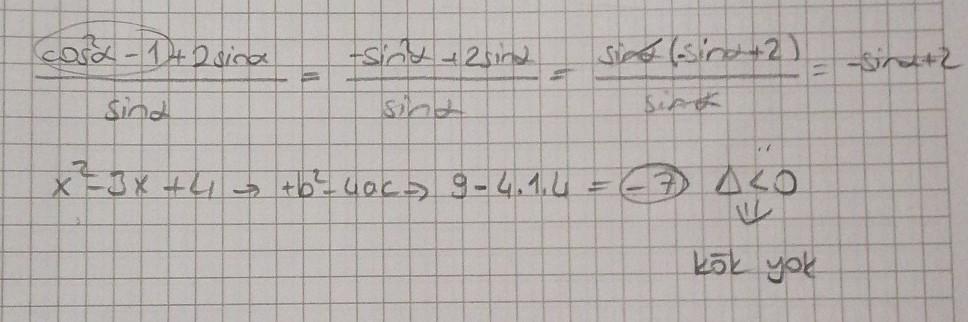 (cos²α - 1) + 2sinα / sinα = -sin²α + 2sinα / sinα = sinα(-sinα+2) / sinα = -sinα+2
x² - 3x + 4 → +b² - 4ac ⇒ 9 - 4.1.4 = -7 Δ < 0
⇓
kök yok